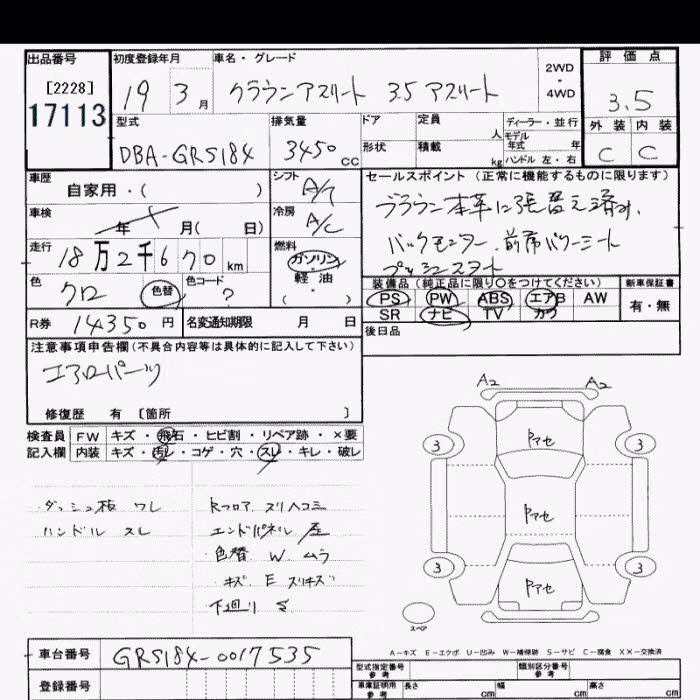 出品番号 初度登録年月 車名・グレード 2WD・4WD 評価点
[2228]
17113
19 3月 クラウンアスリート 3.5アスリート 3.5
型式 排気量 ドア 定員 人 ディーラー・並行 外装 内装
モデル年式 年
DBA-GRS184 3450cc 形状 積載 kg ハンドル 左・右 C C
車歴 シフト セールスポイント(正常に機能するものに限ります)
自家用・( ) A/T
ブラウン本革に張替え済み.
車検 冷房
年 月( 日) A/C
バックモニター.前席パワーシート
走行 燃料
18万2千670km ガソリン・軽油・( )
プッシュスタート
色 色コード
クロ 色替 ?
装備品(純正品に限り○をつけてください) 新車保証書
PS PW ABS エアB AW 有・無
SR ナビ TV カワ
R券 14350円 名変通知期限 月 日
後日品
注意事項申告欄(不具合内容等は具体的に記入して下さい)
エアロパーツ
修復歴 有 [箇所 ]
検査員 FW キズ・飛石・ヒビ割・リペア跡・×要
記入欄 内装 キズ・汚レ・コゲ・穴・スレ・キレ・破レ
ダッシュ板 ワレ
ハンドル スレ
Rフロア スリヘコミ
エンドパネル
色替 W ムラ
キズ E スリキズ
下廻り S
A2 A2
3 3
トマセ
トマセ
トマセ
3 3
スペア
A-キズ E-エクボ U-凹み W-補修跡 S-サビ C-腐食 XX-交換済
車台番号 GRS184-0017535
型式指定番号 参考 類別区分番号 参考
登録番号
車庫証明用 参考 長さ cm 幅 cm 高さ cm